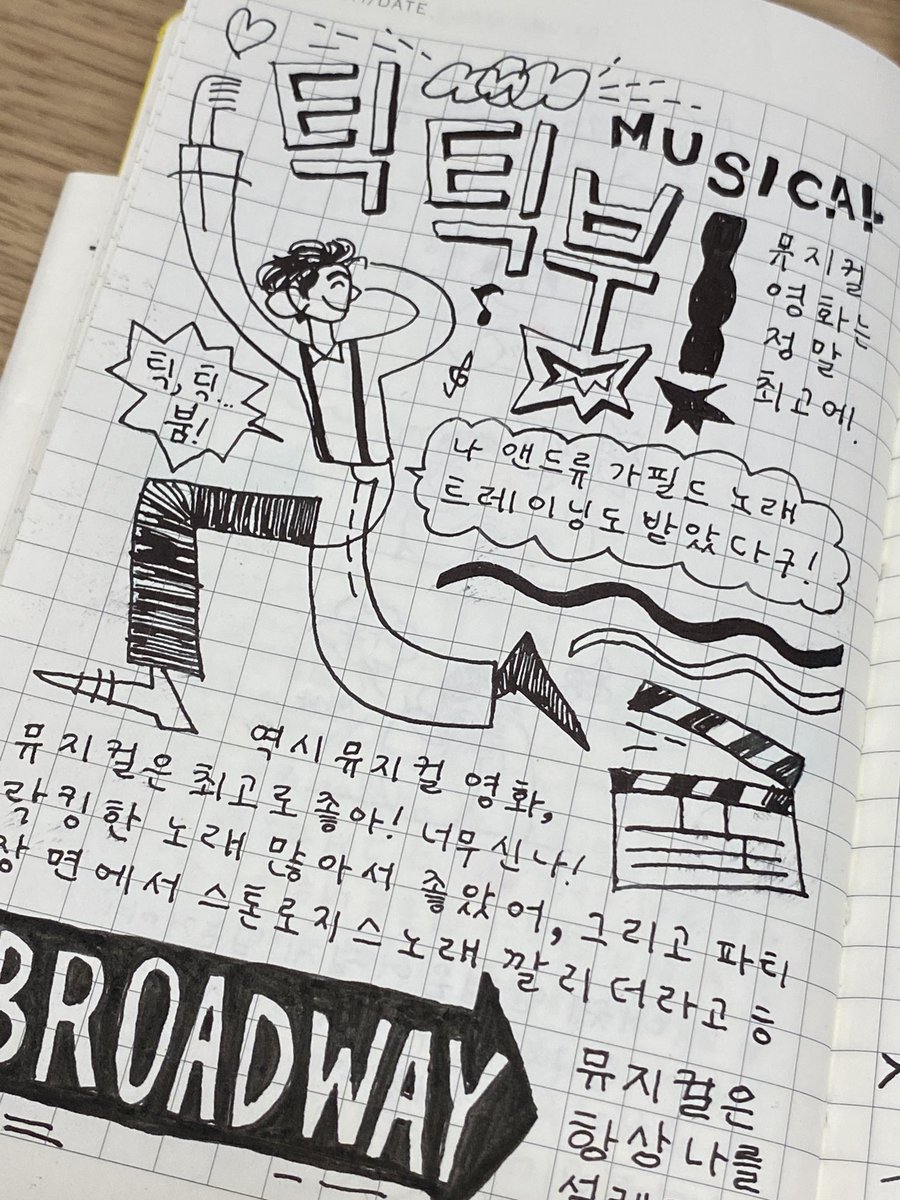 /DATE
틱
틱
붐
MUSICAL
뮤지컬
영화는
정말
최고에!
틱, 틱...
붐!
나 앤드류 가필드 노래
트레이닝도 받았다구!
역시 뮤지컬 영화,
뮤지컬은 최고로 좋아! 너무 신나!
락킹한 노래 많아서 좋았어, 그리고 파티
장면에서 스톤로지스 노래 깔리더라고 흥
BROADWAY
뮤지컬은
항상 나를